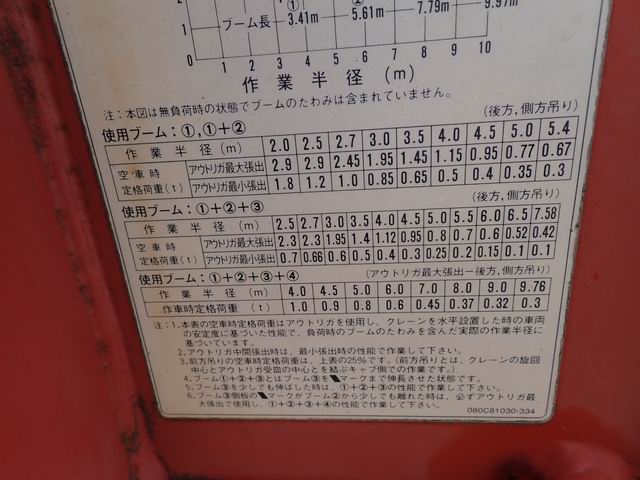 2 ① ②
1 ブーム長 3.41m 5.61m 7.79m 9.97m
0 1 2 3 4 5 6 7 8 9 10
作業半径(m)
注:本図は無負荷時の状態でブームのたわみは含まれていません。
使用ブーム:①,①+② (後方,側方吊り)
作業半径(m) 2.0 2.5 2.7 3.0 3.5 4.0 4.5 5.0 5.4
空車時 アウトリガ最大張出 2.9 2.9 2.45 1.95 1.45 1.15 0.95 0.77 0.67
定格荷重(t) アウトリガ最小張出 1.8 1.2 1.0 0.85 0.65 0.5 0.4 0.35 0.3
使用ブーム:①+②+③ (後方,側方吊り)
作業半径(m) 2.5 2.7 3.0 3.5 4.0 4.5 5.0 5.5 6.0 6.5 7.58
空車時 アウトリガ最大張出 2.3 2.3 1.95 1.4 1.12 0.95 0.8 0.7 0.6 0.52 0.42
定格荷重(t) アウトリガ最小張出 0.7 0.66 0.6 0.5 0.4 0.3 0.25 0.2 0.15 0.1 0.1
使用ブーム:①+②+③+④ (アウトリガ最大張出ー後方,側方吊り)
作業半径(m) 4.0 4.5 5.0 6.0 7.0 8.0 9.0 9.76
空車時定格荷重(t) 1.0 0.9 0.8 0.6 0.45 0.37 0.32 0.3
注:1.本表の空車時定格荷重はアウトリガを使用し、クレーンを水平設置した時の車両
の安定度に基づいた性能で、負荷時のブームのたわみを含んだ実際の作業半径に
基づいています。
2.アウトリガ中間張出時は、最小張出時の性能で作業して下さい。
3.前方吊りの空車時定格荷重は、上表の25%です。(前方吊りとは、クレーンの旋回
中心とアウトリガ受皿の中心とを結ぶキャブ側での作業です。)
4.ブーム①+②+③とはブーム③を◥マークまで伸長させた状態です。
5.ブーム③を少しでも伸ばした時は、①+②+③の性能で作業して下さい。
6.ブーム③側板の◥マークがブーム②から少しでも離れた時は、必ずアウトリガ最
大張出で使用し、①+②+③+④の性能で作業して下さい。
080C81030-334